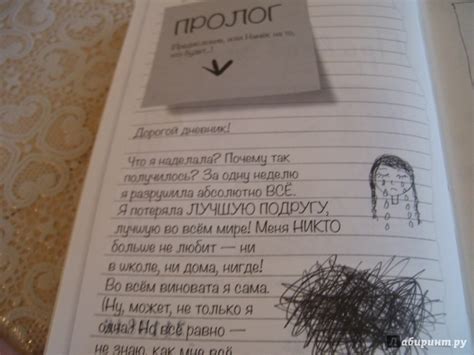 ПРОЛОГ
Предисловие, или Намёк на то,
что будет...!
Дорогой дневник!
Что я наделала? Почему так
получилось? За одну неделю
я разрушила абсолютно ВСЁ.
Я потеряла ЛУЧШУЮ ПОДРУГУ,
лучшую во всём мире! Меня НИКТО
больше не любит — ни
в школе, ни дома, нигде!
Во всём виновата я сама.
(Ну, может, не только я
одна! Но всё равно —
не знаю, как мне всё
Лабиринт.ру